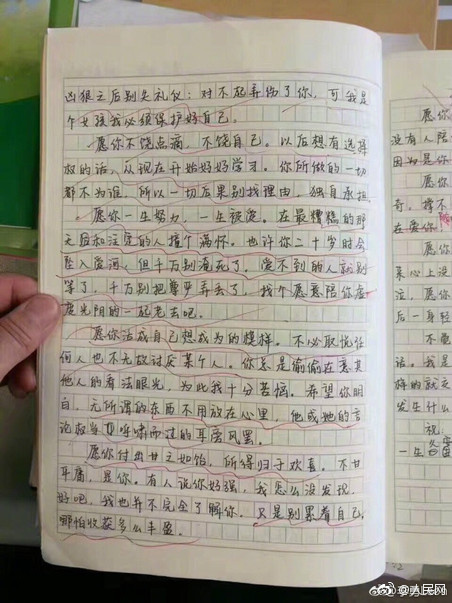 凶狠之后别失礼仪：对不起弄伤了你，可我是
个女孩我必须保护好自己。
愿你不饶点滴，不饶自己。以后想有选择
权的话，从现在开始好好学习。你所做的一切
都不为谁，所以一切后果别找理由，独自承担
愿你一生努力，一生被爱。在最糟糕的那
天后和注定的人撞个满怀。也许你二十岁时会
坠入爱河，但千万别淹死了，爱不到的人就别
等了，千万别把尊严弄丢了，找个愿意陪你虚
度光阴的一起老去吧。
愿你活成自己想成为的模样。不必取悦任
何人也不无故讨厌某个人。你总是偷偷在意其
他人的看法眼光，为此我十分苦恼。希望你明
白，无所谓的东西不用放在心里，他或她的言
论权当耳旁风罢。
愿你付出甘之如饴，所得归于欢喜。不甘
平庸，是你。有人说你好强，我怎么没发现，
好吧，我也并不完全了解你。只是别累着自己，
哪怕收获多么丰盈。
愿你
没有人陪
因为是你
愿你
奇，撑不
在爱你
愿你
来心上没
注，愿你
后一身轻
不要
话。我是
梅的就
发生什么
祝
一生
人民网